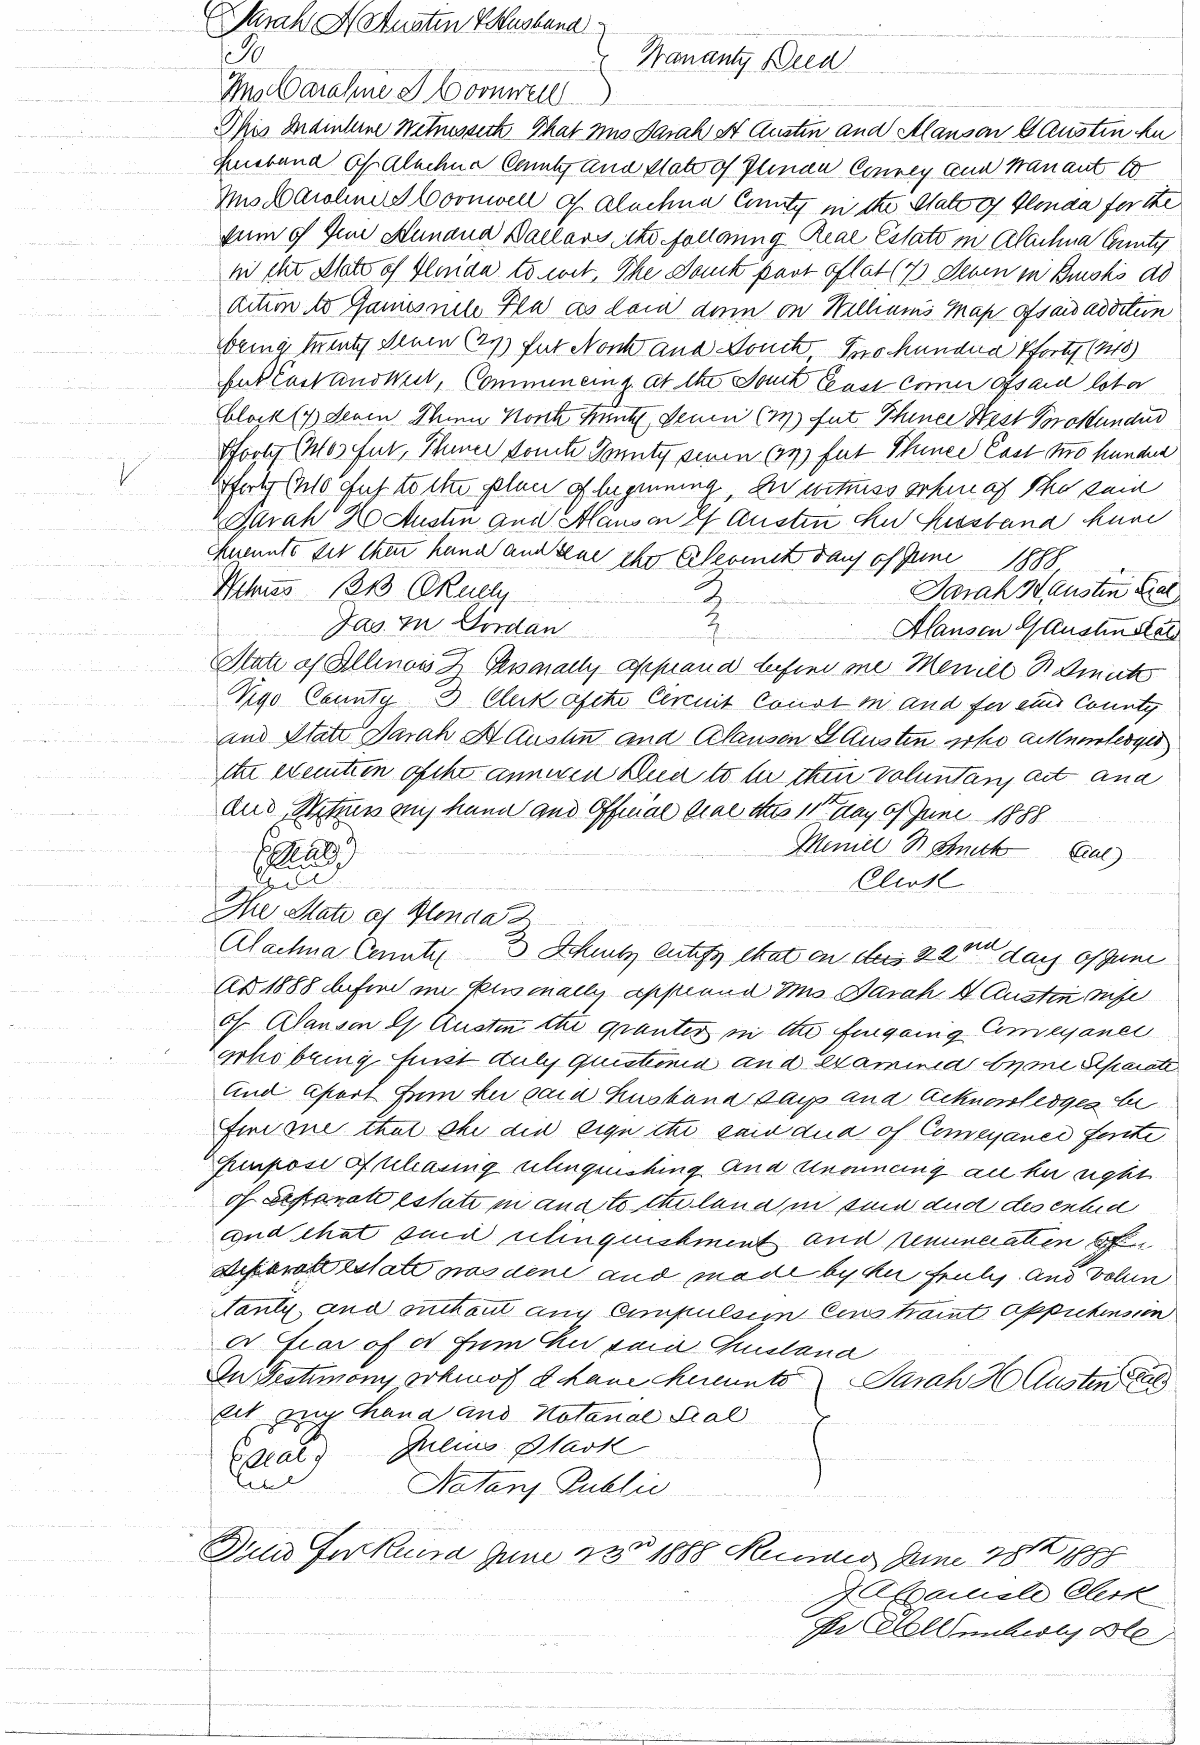 Sarah H Austin & Husband
To
Warranty Deed
Mrs Caroline S Cornwell
This Indenture Witnesseth That Mrs Sarah H Austin and Alanson G Austin her
husband of Alachua County and State of Florida Convey and Warrant to
Mrs Caroline S Cornwell of Alachua County in the State of Florida for the
sum of Five Hundred Dollars, the following Real Estate in Alachua County
in the State of Florida to wit, The South part of lot (7) Seven in Brush's ad
dition to Gainesville Fla as laid down on William's Map of said addition
being twenty Seven (27) feet North and South, Two hundred & forty (240)
feet East and West, Commencing at the South East corner of said lot or
block (7) Seven Thence North twenty Seven (27) feet Thence West Two Hundred
& forty (240) feet, Thence South Twenty seven (27) feet Thence East two hundred
& forty (240 feet to the place of beginning, In witness where of The said
Sarah H Austin and Alanson G Austin her husband have
hereunto set their hand and seal the Eleventh day of June 1888
Witness B B OReilly Sarah H Austin Seal
Jas. M Gordan Alanson G Austin Seal
State of Illinois Personally appeard before me Merrill N Smith
Vigo County Clerk of the Circuit Court in and for said County
and State Sarah H Austin and Alanson G Austin who acknowledged
the execution of the annexed Deed to be their voluntary act and
deed, Witness my hand and Official Seal this 11th day of June 1888
(Seal) Merrill N Smith (Seal)
Clerk
The State of Florida
Alachua County I hereby certify that on this 22nd day of June
AD 1888 before me personally appeard Mrs Sarah H Austin wife
of Alanson G Austin the grantor in the foregoing Conveyance
who being first duly questioned and examined by me Separate
and apart from her said husband says and acknowledges be
fore me that she did sign the said deed of Conveyance for the
purpose of releasing relinquishing and renouncing all her right
of Separate estate in and to the land in said deed described
and that said relinquishment and renunciation of
Separate estate was done and made by her freely and volun
tarily, and without any compulsion Constraint apprehension
or fear of or from her said husband
In Testimony whereof I have hereunto Sarah H Austin Seal
set my hand and Notarial Seal
(Seal) Julius Stark
Notary Public
Filed for Record June 23rd 1888 Recorded June 28th 1888
J A Carlisle Clerk
Wimberly DC